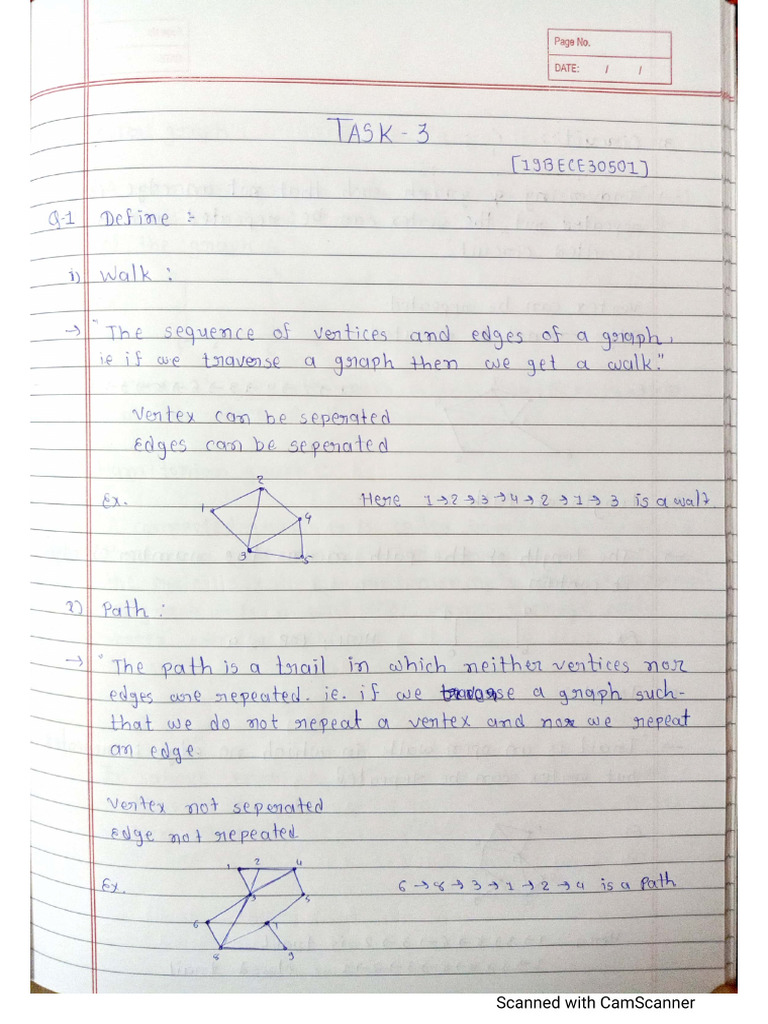 Page No.
DATE: / /
TASK-3
[19BECE30501]
Q-1 Define :-
i) Walk :
→ "The sequence of vertices and edges of a graph,
ie if we traverse a graph then we get a walk."
Vertex can be seperated
Edges can be seperated
Ex. Here 1→2→3→4→2→1→3 is a walk
1 2 3 4 5
2) Path :
→ "The path is a trail in which neither vertices nor
edges are repeated. ie. if we traverse a graph such-
that we do not repeat a vertex and nor we repeat
an edge.
Vertex not seperated
Edge not repeated
Ex. 6→8→3→1→2→4 is a Path
1 2 4
3 5
6 7
8 9
Scanned with CamScanner